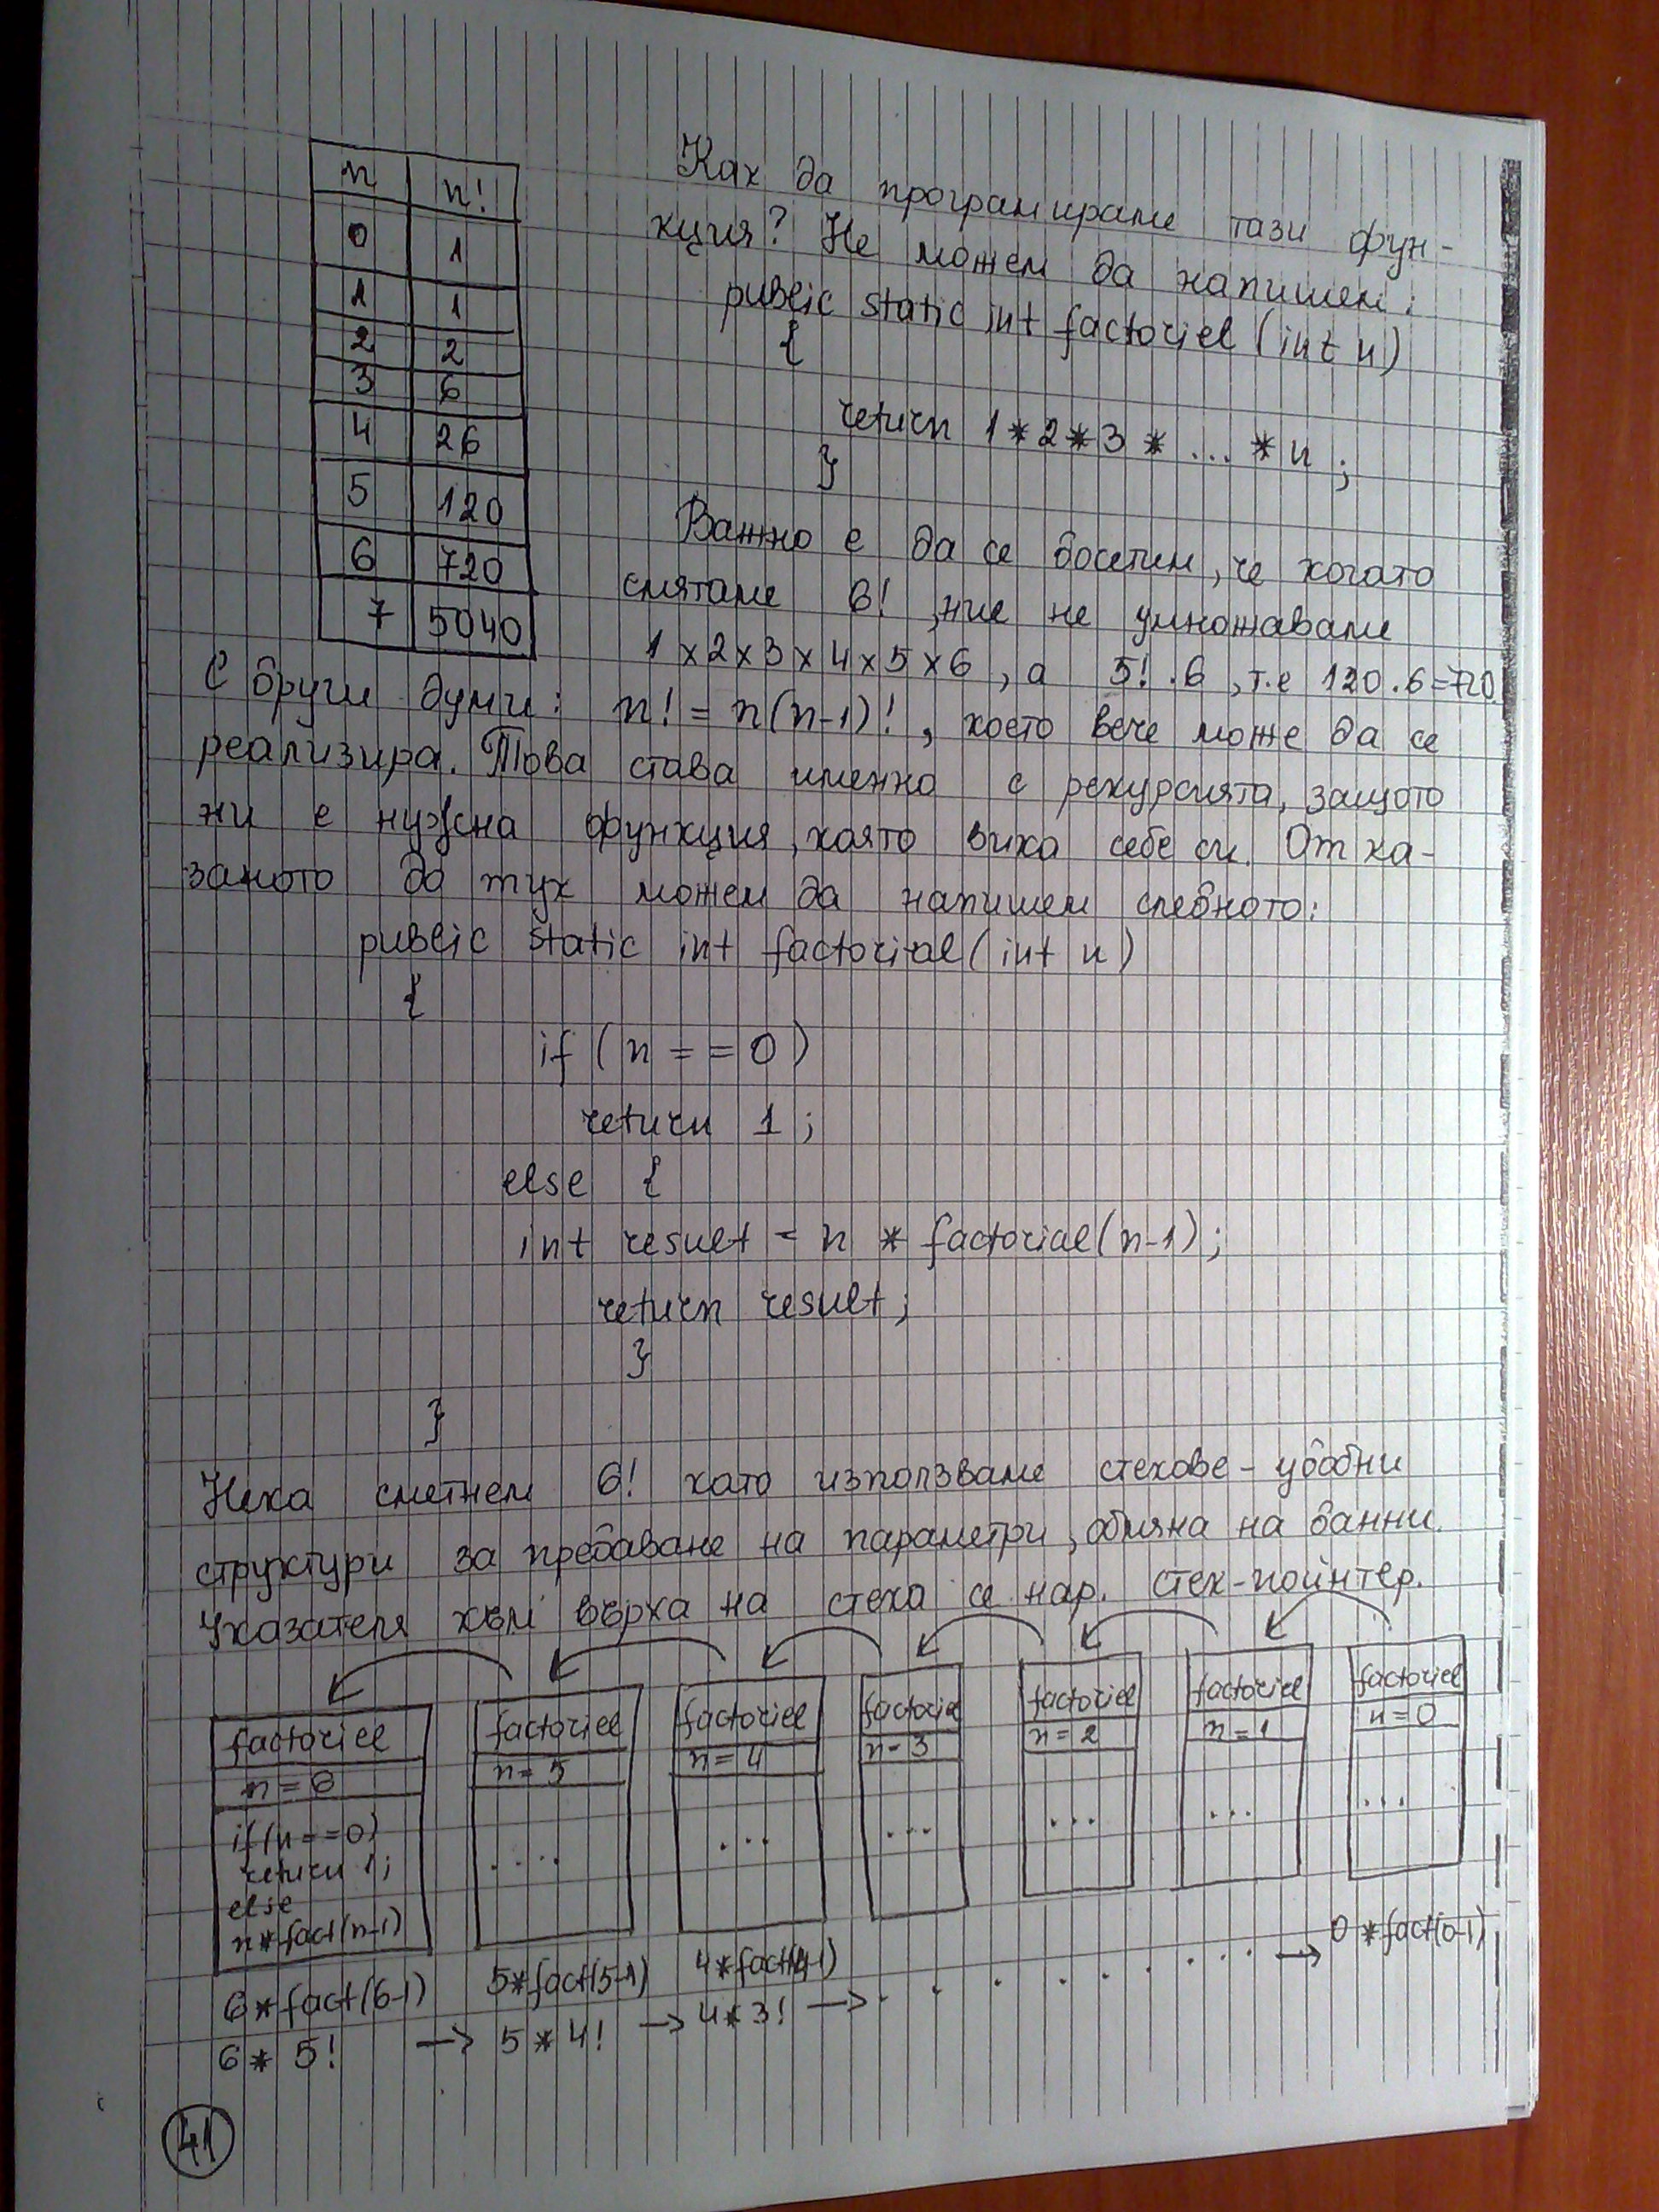 n n!
0 1
1 1
2 2
3 6
4 26
5 120
6 720
7 5040
Как да програмираме тази фун-
кция? Не можем да напишем:
public static int factoriel (int n)
{
return 1*2*3* ... *n ;
}
Важно е да се досетим, че когато
смятаме 6! , ние не умножаваме
1x2x3x4x5x6 , а 5! . 6 , т.е 120.6=720.
С други думи: n! = n(n-1)! , което вече може да се
реализира. Това става именно с рекурсията, защото
ни е нужна функция, която вика себе си. От ка-
заното до тук можем да напишем следното:
public static int factorial (int n)
{
if (n == 0)
return 1 ;
else {
int result = n * factorial(n-1) ;
return result ;
}
}
Нека сметнем 6! като използваме стекове - удобни
структури за предаване на параметри, обмяна на данни.
Указателя към върха на стека се нар. стек-пойнтер.
factoriel factoriel factoriel factoriel factoriel factoriel factoriel
n=6 n=5 n=4 n=3 n=2 n=1 n=0
if(n==0) .... ... ... ... ... ...
return 1;
else
n*fact(n-1)
6*fact(6-1) 5*fact(5-1) 4*fact(4-1) 0*fact(0-1)
6* 5! → 5*4! → 4*3! → . . . . . . . . . →
41